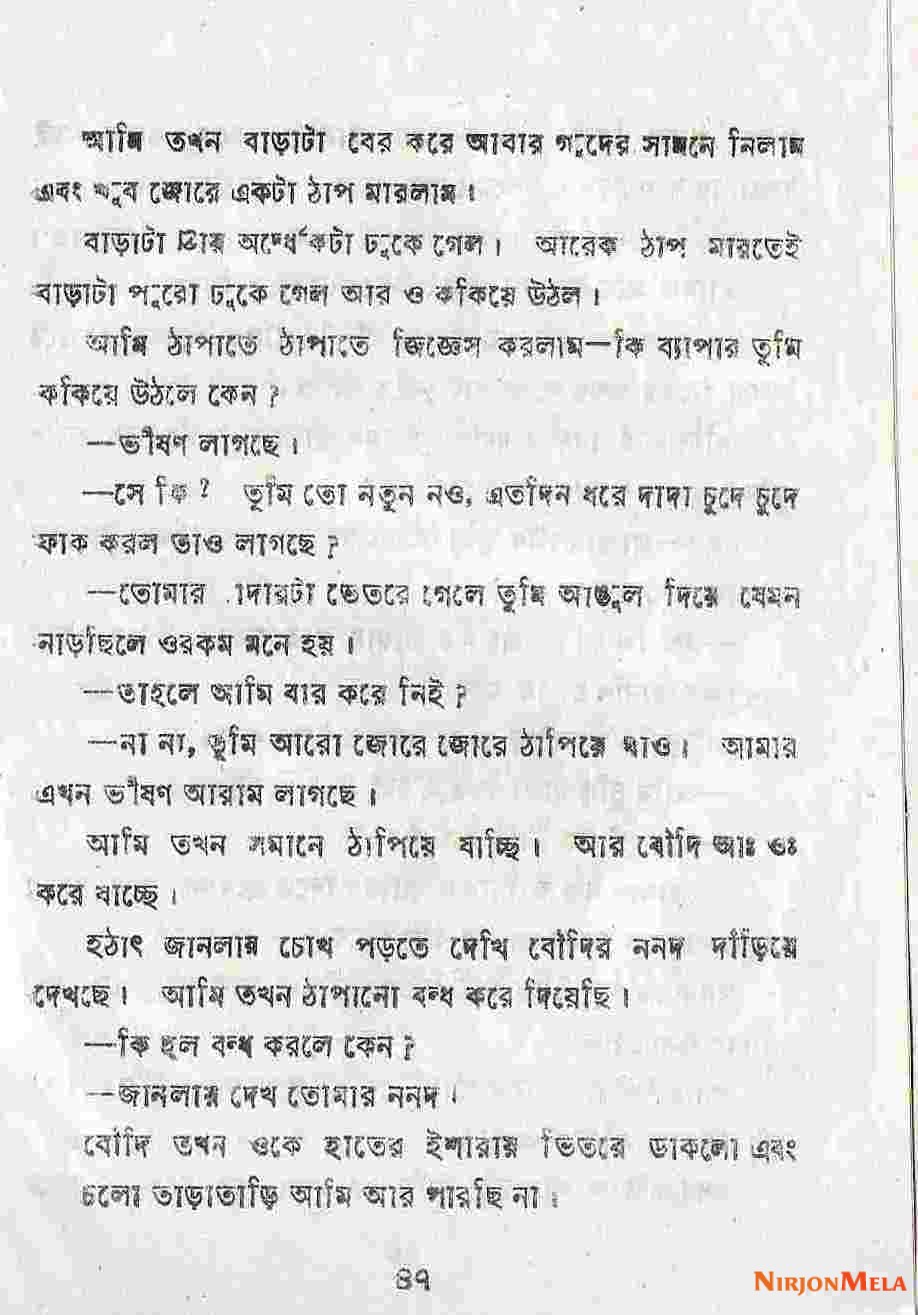 আমি তখন বাড়াটা বের করে আবার গুদের সামনে নিলাম
এবং খুব জোরে একটা ঠাপ মারলাম।
বাড়াটা প্রায় অর্ধেকটা ঢুকে গেল। আরেক ঠাপ মারতেই
বাড়াটা পুরো ঢুকে গেল আর ও ককিয়ে উঠল।
আমি ঠাপাতে ঠাপাতে জিজ্ঞেস করলাম—কি ব্যাপার তুমি
ককিয়ে উঠলে কেন?
—ভীষণ লাগছে।
—সে কি? তুমি তো নতুন নও, এতদিন ধরে দাদা চুদে চুদে
ফাক করল তাও লাগছে?
—তোমার ভেতরে গেলে তুমি আঙ্গুল দিয়ে যেমন
নাড়ছিলে ওরকম মনে হয়।
—তাহলে আমি বার করে নিই?
—না না, তুমি আরো জোরে জোরে ঠাপিয়ে যাও। আমার
এখন ভীষণ আরাম লাগছে।
আমি তখন সমানে ঠাপিয়ে যাচ্ছি। আর বৌদি আঃ ওঃ
করে যাচ্ছে।
হঠাৎ জানলায় চোখ পড়তে দেখি বৌদির ননদ দাঁড়িয়ে
দেখছে। আমি তখন ঠাপানো বন্ধ করে দিয়েছি।
—কি হল বন্ধ করলে কেন?
—জানলায় দেখ তোমার ননদ।
বৌদি তখন ওকে হাতের ইশারায় ভিতরে ডাকলো এবং
চলো তাড়াতাড়ি আমি আর পারছি না।
৪৭
NIRJONMELA